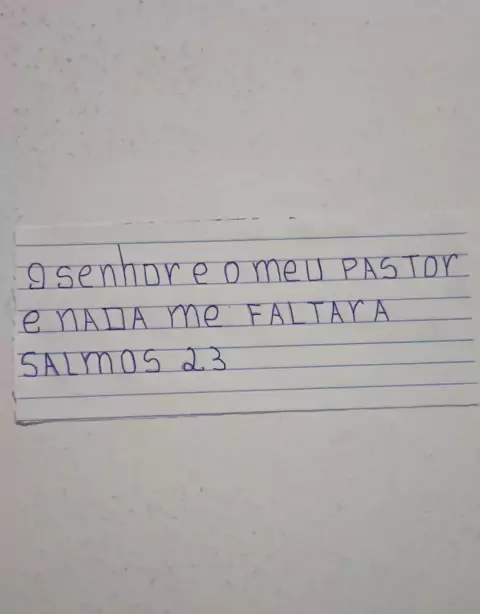 O senhor e o meu PASTOr
e nADA me FALTArA
SALmOS 23